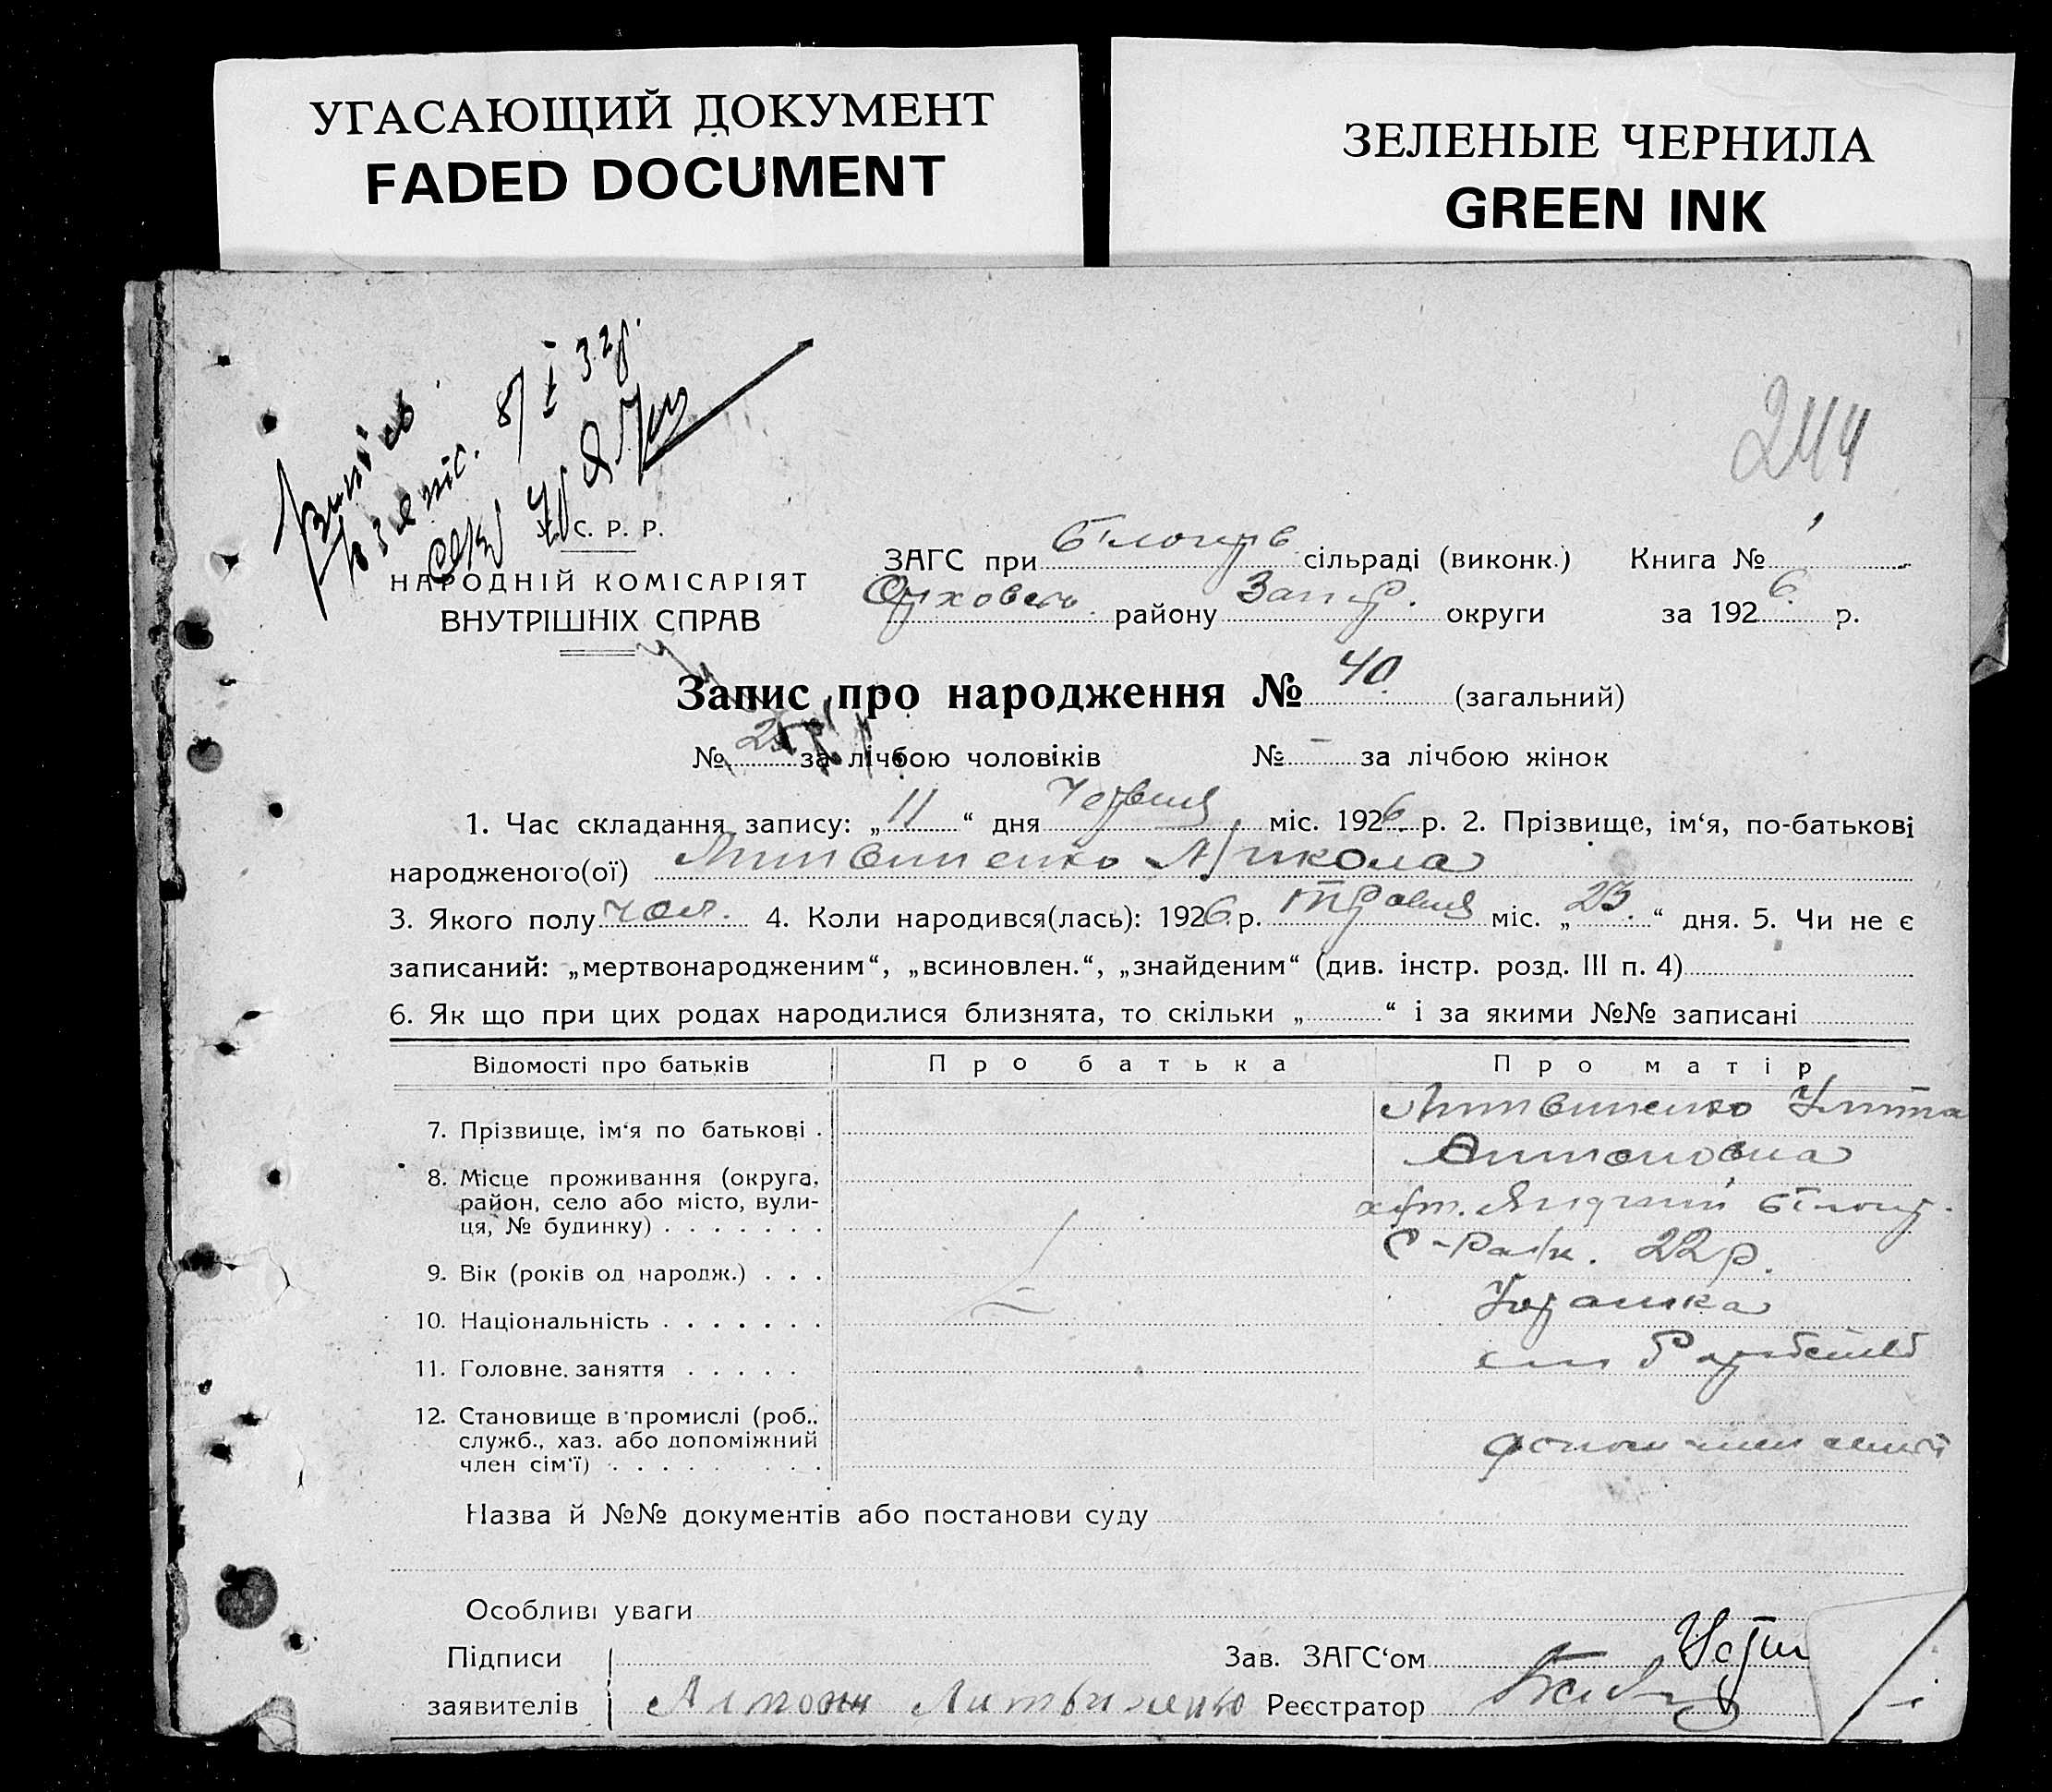 УГАСАЮЩИЙ ДОКУМЕНТ
FADED DOCUMENT
ЗЕЛЕНЫЕ ЧЕРНИЛА
GREEN INK
8/I 32р.
244
У. С. Р. Р.
НАРОДНІЙ КОМІСАРІЯТ
ВНУТРІШНІХ СПРАВ
ЗАГС при сільраді (виконк.) Книга №
району Запор. округи за 1926 р.
Запис про народження № 40. (загальний)
№ за лічбою чоловіків № – за лічбою жінок
1. Час складання запису: „11“ дня Червня міс. 1926 р. 2. Прізвище, ім‘я, по-батькові
народженого(ої) Литвиненко Микола
3. Якого полу чол. 4. Коли народився(лась): 1926 р. Травня міс. „23.“ дня. 5. Чи не є
записаний: „мертвонародженим“, „всиновлен.“, „знайденим“ (див. інстр. розд. III п. 4)
6. Як що при цих родах народилися близнята, то скільки „ “ і за якими №№ записані
Відомості про батьків Про батька Про матір
7. Прізвище, ім‘я по батькові . Литвиненко Улита
Антоновна
8. Місце проживання (округа, район, село або місто, вули-
ця, № будинку)
9. Вік (років од народж.) . . . 22 р.
10. Національність Українка
11. Головне заняття
12. Становище в промислі (роб.,
служб., хаз. або допоміжний
член сім‘ї)
Назва й №№ документів або постанови суду
Особливі уваги
Підписи Зав. ЗАГС‘ом
заявителів Антон Литвиненко Реєстратор